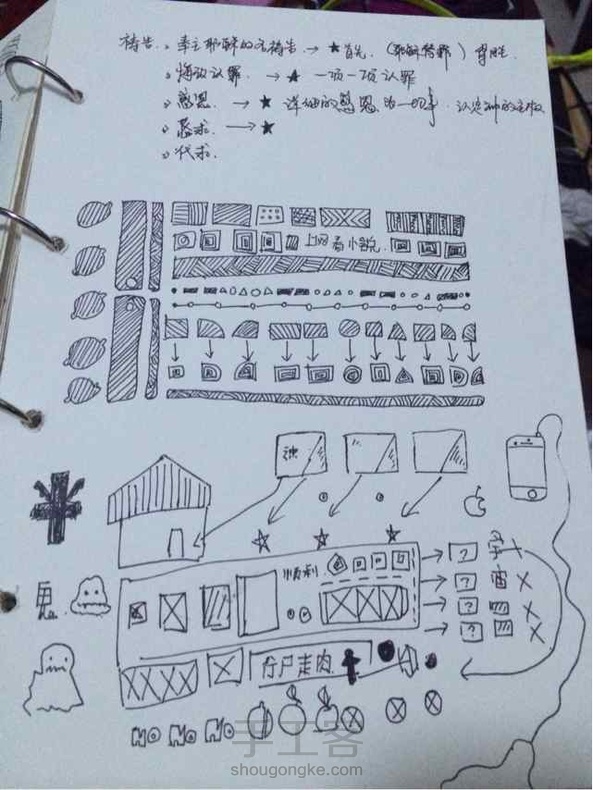 祷告。奉主耶稣的名祷告 → ★ 首先.（耶稣替罪）背胜.
悔改认罪. → ★ 一项一项认罪
感恩. → ★ 详细的感恩 为一切事. 认定神的主权
恳求. → ★
代求.
上网看小说.
浊
顺利
? 字 X
? 宙 X
鬼.
? X
? X
行尸走肉.
NO NO NO
手工客
shougongke.com